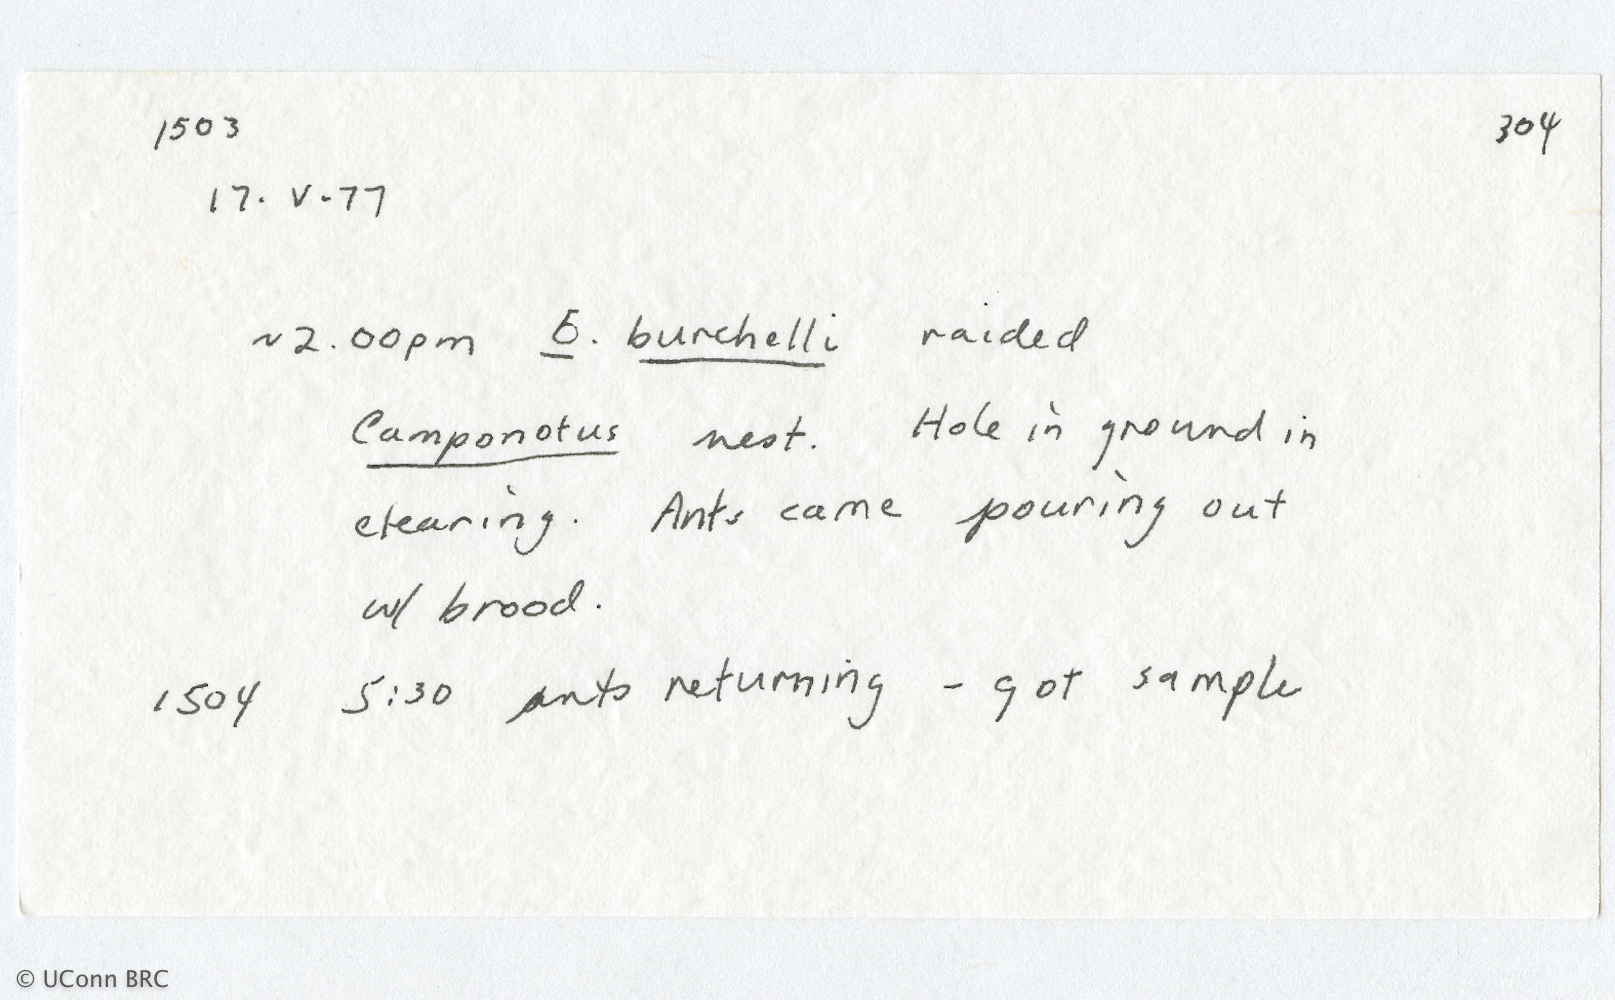 1503 304
17. V. 77
~2.00pm E. burchelli raided
Camponotus nest. Hole in ground in
clearing. Ants came pouring out
w/ brood.
1504 5:30 ants returning - got sample
© UConn BRC